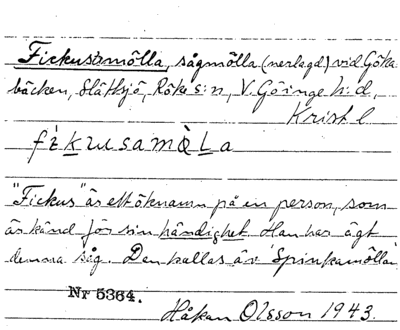 Fickusamölla, sågmölla (nerlagd) vid Göka-
bäcken, Slättsjö, Röke s:n, V. Göinge h:d,
Krist l
"Fickus" är ett öknamn på en person, som
är känd för sin händighet. Han har ägt
denna såg. Den kallas äv. Spinkamöllan
Nr 5364.
Håkan Olsson 1943.